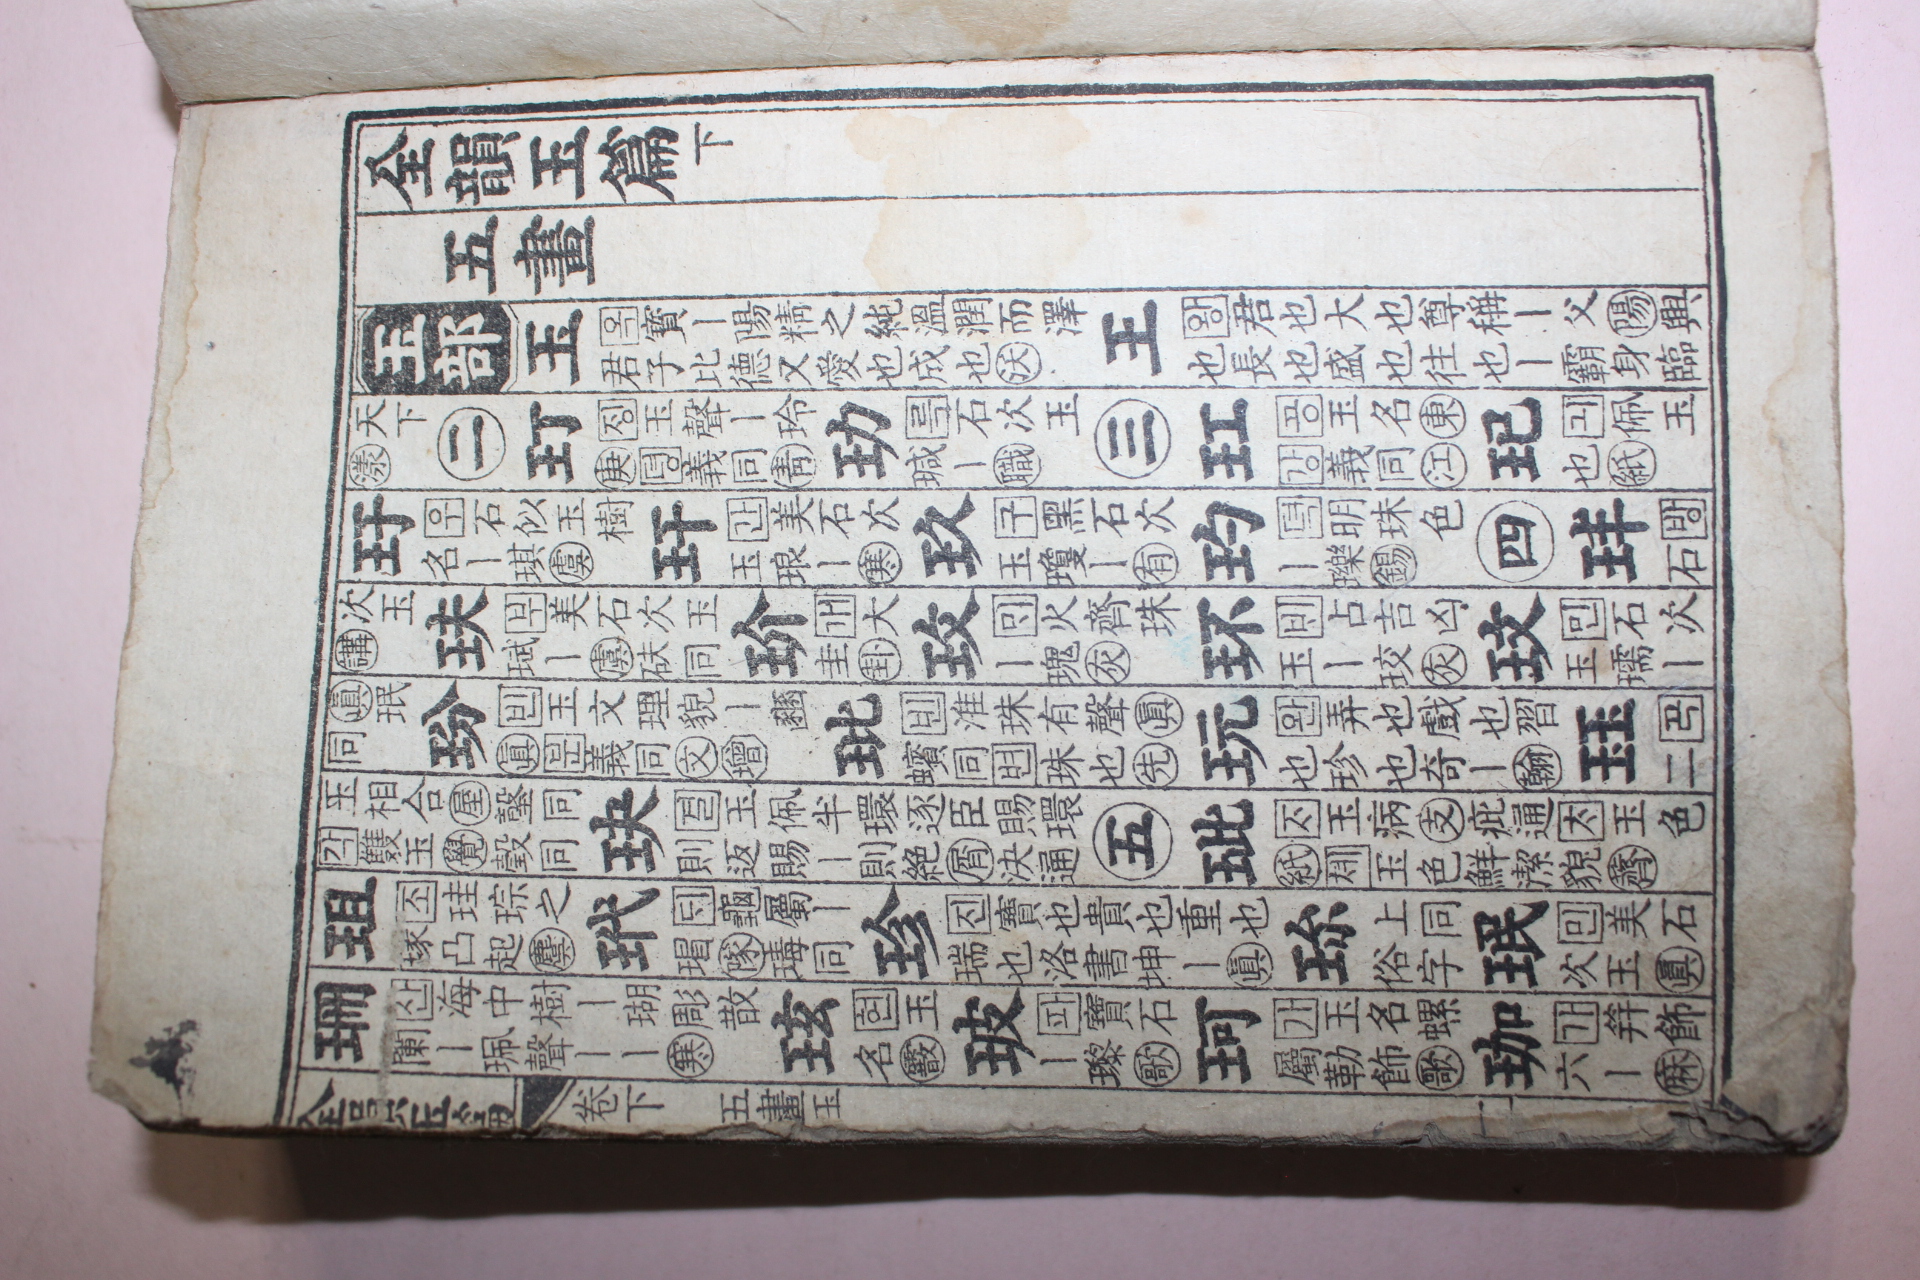 全韻玉篇 下
五畫
玉部 玉 옥 寶ㅣ陽精之純溫潤而澤君子比德又愛也成也沃 王 왕 君也大也尊稱ㅣ父陽興也長也盛也往也ㅣ霸身臨
天下漾 二 玎 졍 玉聲ㅣ玲庚 뎡 義同靑 玏 륵 石次玉瑊ㅣ職 三 玒 공 玉名東 강 義同江 玘 긔 佩玉也紙
玗 우 石似玉樹名ㅣ琪虞 玕 간 美石次玉琅ㅣ寒 玖 구 黑石次玉瓊ㅣ有 玓 뎍 明珠色ㅣ瓅錫 四 玤 방 石
次玉講 玞 부 美石次玉珷ㅣ虞砆同 玠 개 大圭卦 玫 ᄆᆡ 火齊珠ㅣ瑰灰 环 ᄇᆡ 占吉凶玉ㅣ珓灰 玟 민 石次玉瓀ㅣ
眞珉同 玢 빈 玉文理貌ㅣ豳眞 분 義同文增 玭 빈 淮珠有聲眞蠙同 변 珠也先 玩 완 弄也戲也習也珍也奇ㅣ翰 玨 곡 二
玉相合屋鑿同 각 雙玉覺瑴同 玦 결 玉佩半環逐臣賜環則返賜ㅣ則絶屑決通 五 玼 ᄌᆞ 玉病支疵通 ᄎᆞ 玉色 쳬 玉色鮮潔貌薺紙
珇 조 珪琮之瑑凸起麌 玳 ᄃᆡ 龜屬ㅣ瑁隊瑇同 珍 진 寶也貴也重也瑞也洛書坤ㅣ眞 珎 上同俗字 珉 민 美石次玉眞
珊 산 海中樹ㅣ瑚彫散闌ㅣ珮聲ㅣㅣ寒 玹 현 玉名霰 玻 파 寶石ㅣ瓈歌 珂 가 玉名螺屬勒飾歌 珈 가 笄飾六ㅣ麻
全韻玉篇 卷下 五畫玉 一